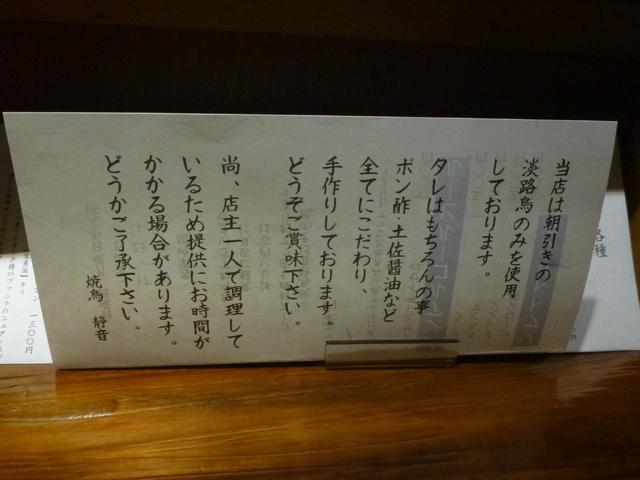 当店は朝引きの
淡路鳥のみを使用
しております。
タレはもちろんの事
ポン酢・土佐醤油など
全てにこだわり、
手作りしております。
どうぞご賞味下さい。
尚、店主一人で調理して
いるため提供にお時間が
かかる場合があります。
どうかご了承下さい。
焼鳥 静音
各種
一三〇〇円